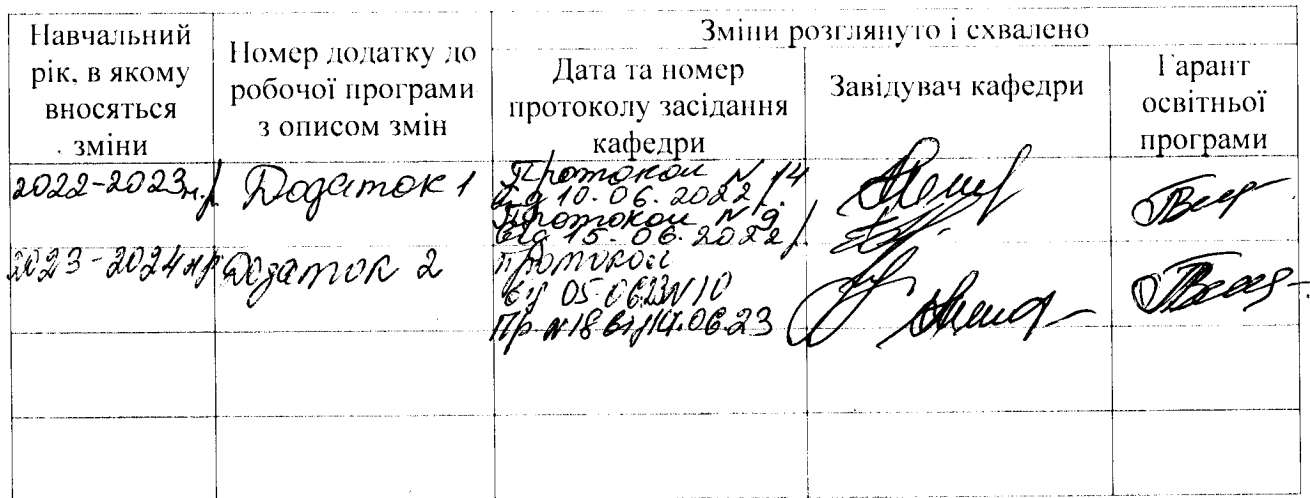 Навчальний
рік, в якому
вносяться
зміни
Номер додатку до
робочої програми
з описом змін
Зміни розглянуто і схвалено
Дата та номер
протоколу засідання
кафедри
Завідувач кафедри
Гарант
освітньої
програми
2022-2023н.р.
Додаток 1
Протокол N 14
від 10.06.2022р.
Протокол N 9
від 15.06.2022р.
2023-2024 нр
Додаток 2
протокол
від 05.0623 N10
Пр N18 від 14.06.23